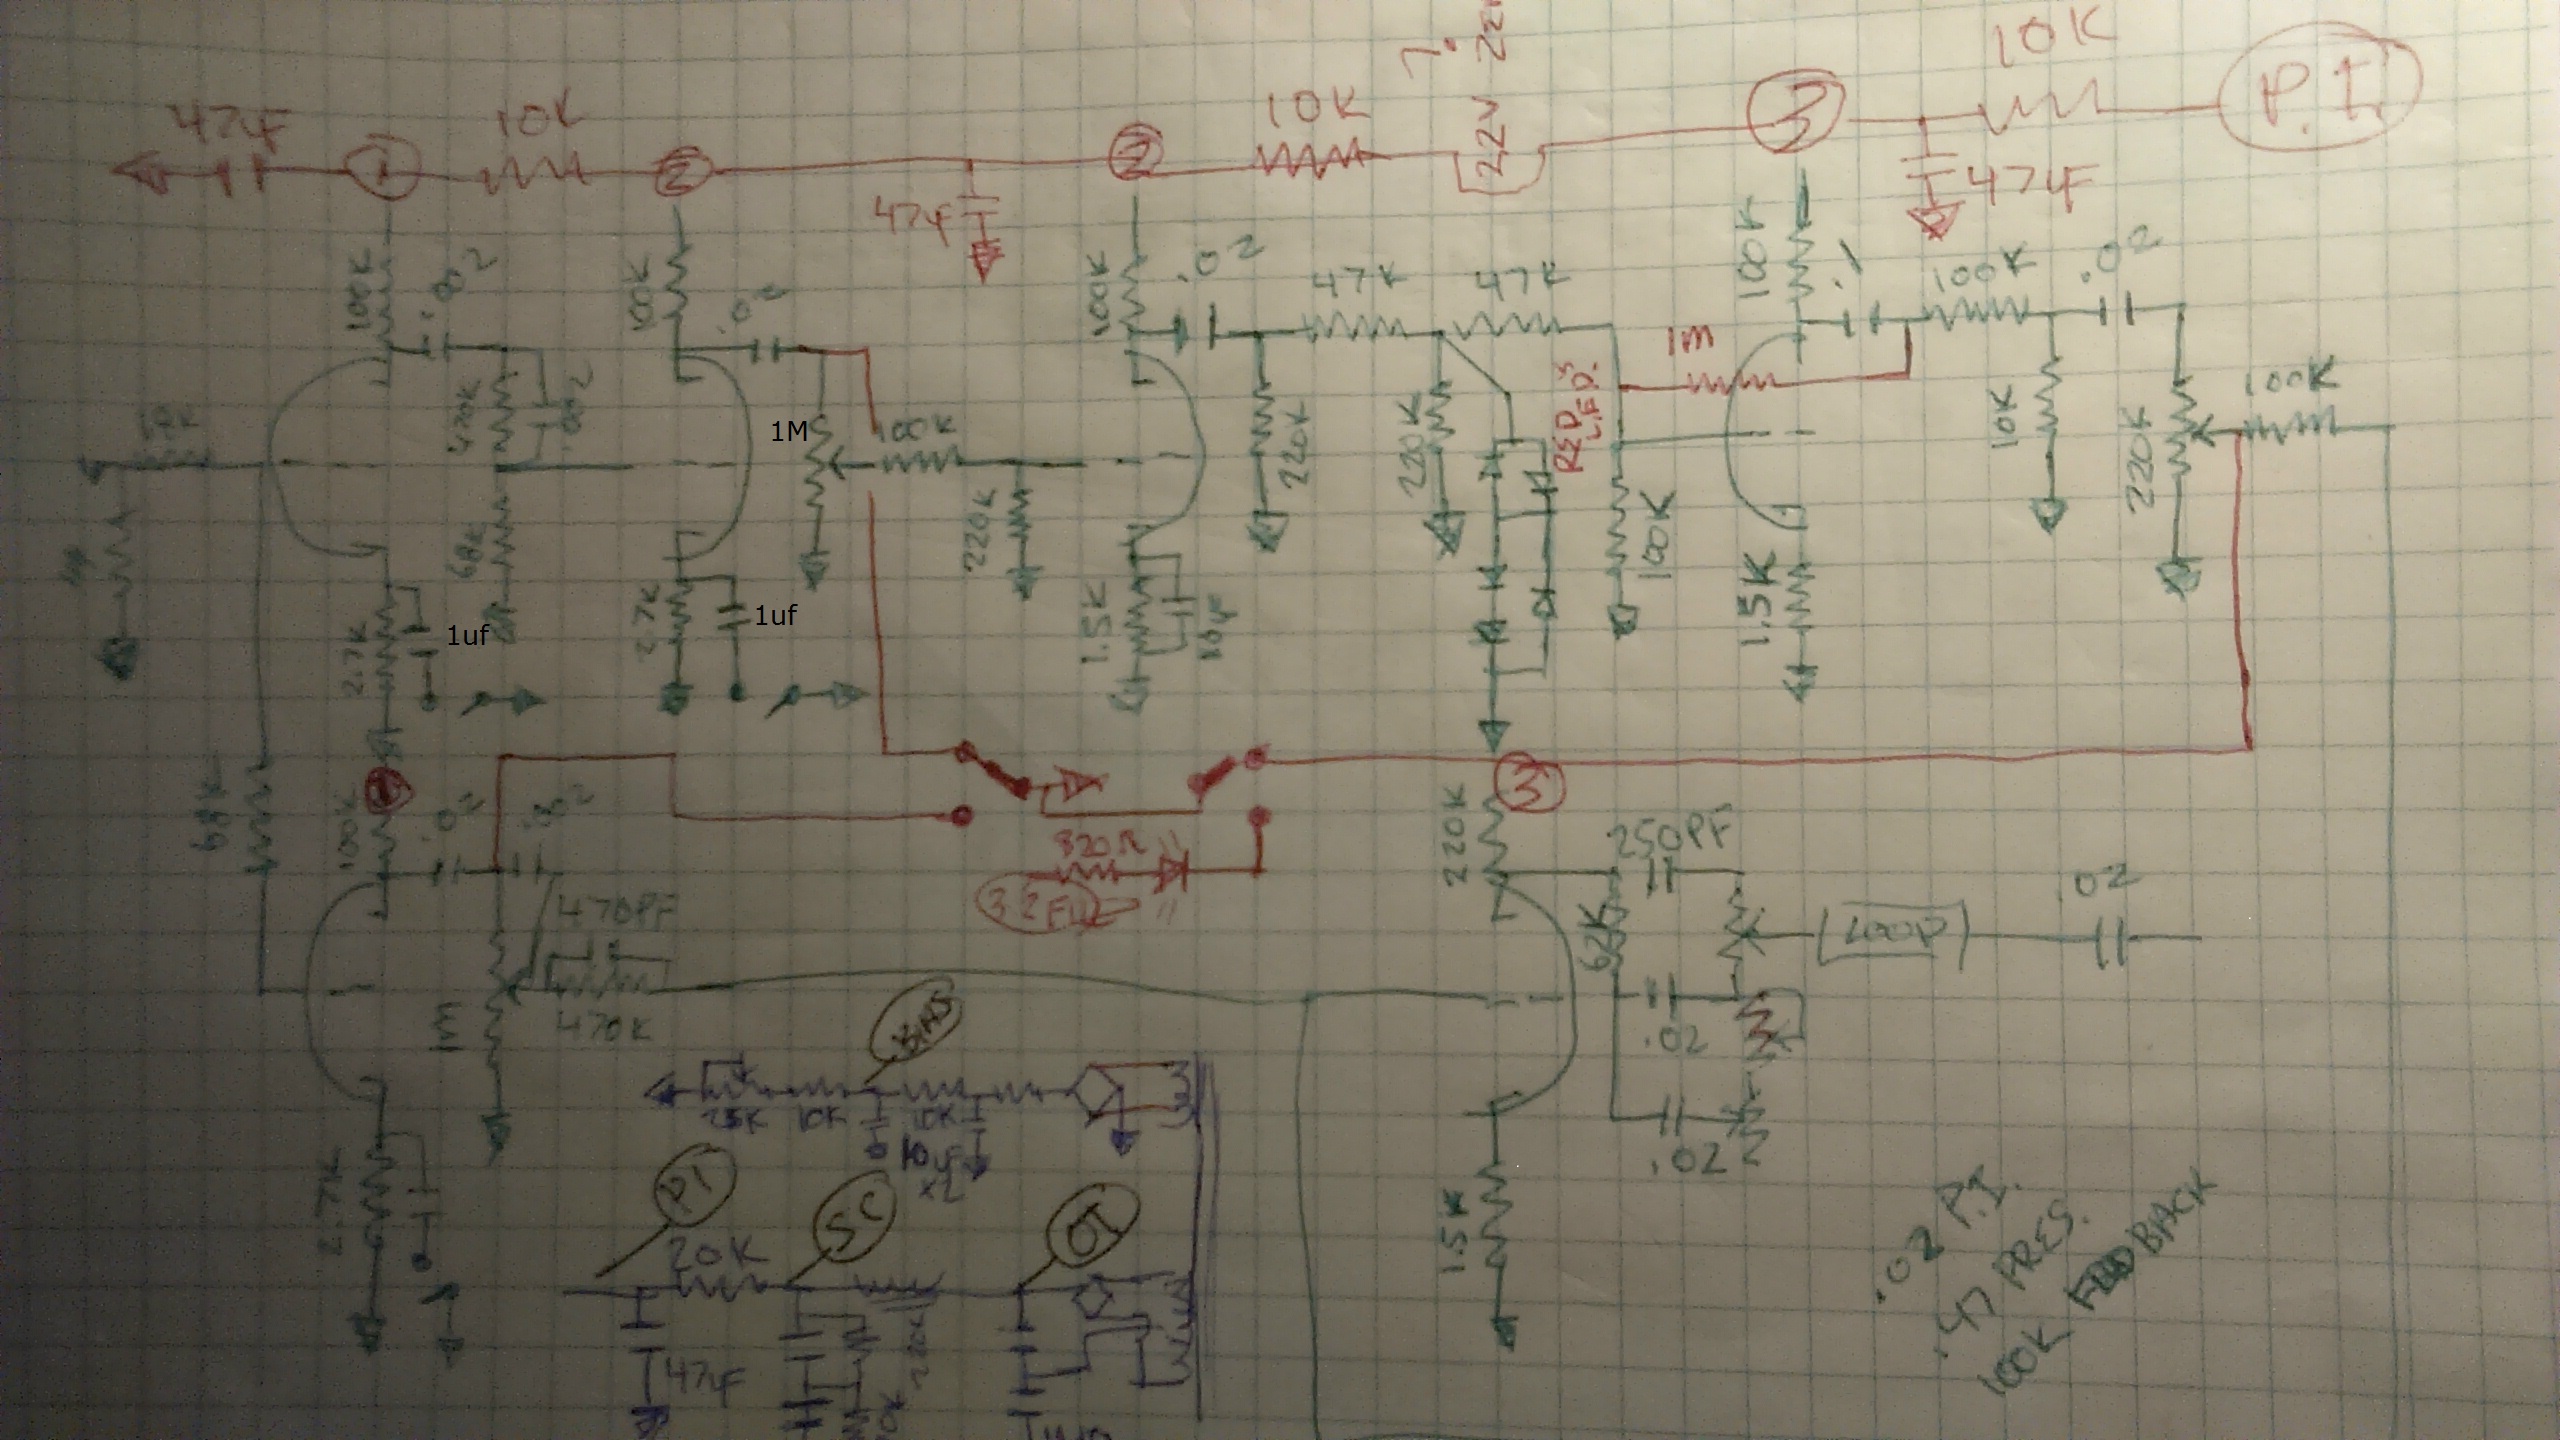 10K
47uF
10K
1
2
2
10K
22V
3
P.I.
47uF
47uF
100K
100K
.02
100K
.02
47K
47K
100K
.1
100K
.02
1M
RED
L.E.D.'S
470K
.002
1M
100K
100K
220K
220K
10K
220K
68K
220K
100K
2.7K
1uf
2.7K
1uf
1.5K
10uF
1.5K
68K
100K
.02
.002
820R
3
220K
250PF
470PF
62K
LOOP
.02
1M
470K
BIAS
.02
25K
10K
10K
10uF
x2
.02
PI
SC
OT
2.7K
20K
220K
1.5K
47uF
.02 P.I.
.47 PRES.
100K FEEDBACK